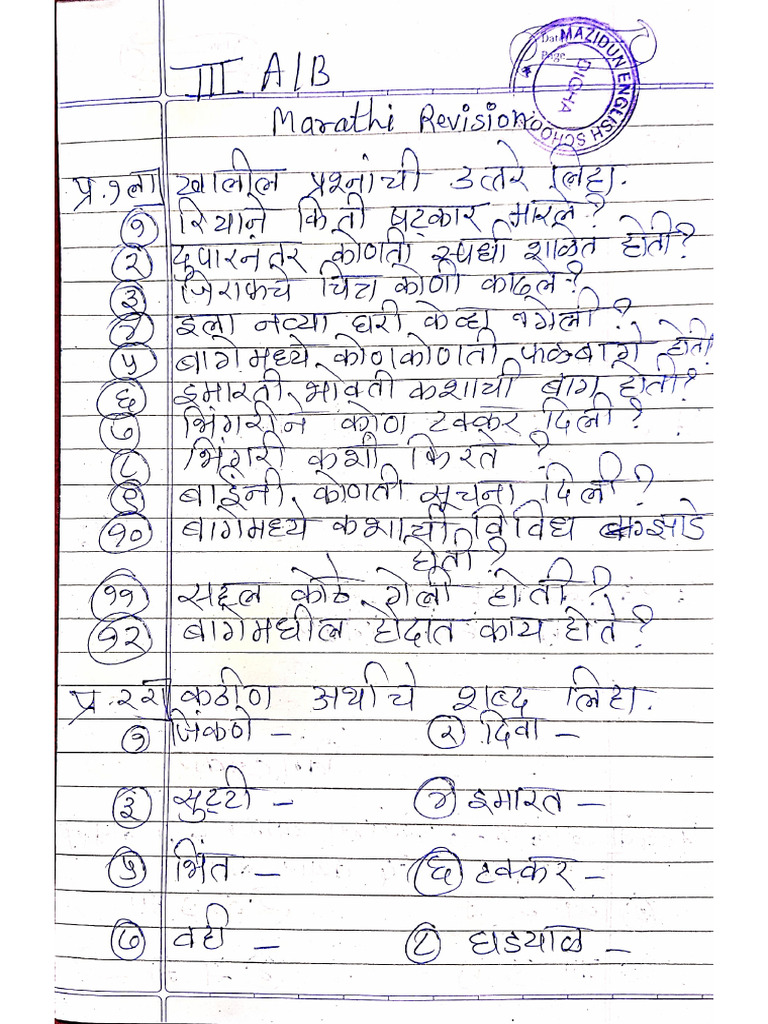 III A/B
Date
Page
MAZIDUN ENGLISH SCHOOL
DIGHA
Marathi Revision
प्र.१ला खालील प्रश्नांची उत्तरे लिहा.
१ रियाने किती षट्कार मारले?
२ दुपारनंतर कोणती स्पर्धा शाळेत होती?
३ जिराफाचे चित्र कोणी काढले?
४ इला नव्या घरी केव्हा गेली?
५ बागेमध्ये कोणकोणती फळबागे होती
६ इमारती भोवती कशाची बाग होती?
७ भिंगरीने कोण टक्कर दिली?
८ भिंगरी कशी फिरते?
९ बाईंनी कोणती सूचना दिली?
१० बागेमध्ये कशाची विविध झाडे
होती?
११ सहल कोठे गेली होती?
१२ बागेमधील हौदात काय होते?
प्र.२रा कठीण अर्थाचे शब्द लिहा.
१ जिंकणे – २ दिवा –
३ सुट्टी – ४ इमारत –
५ भिंत – ६ टक्कर –
७ वही – ८ घड्याळ –